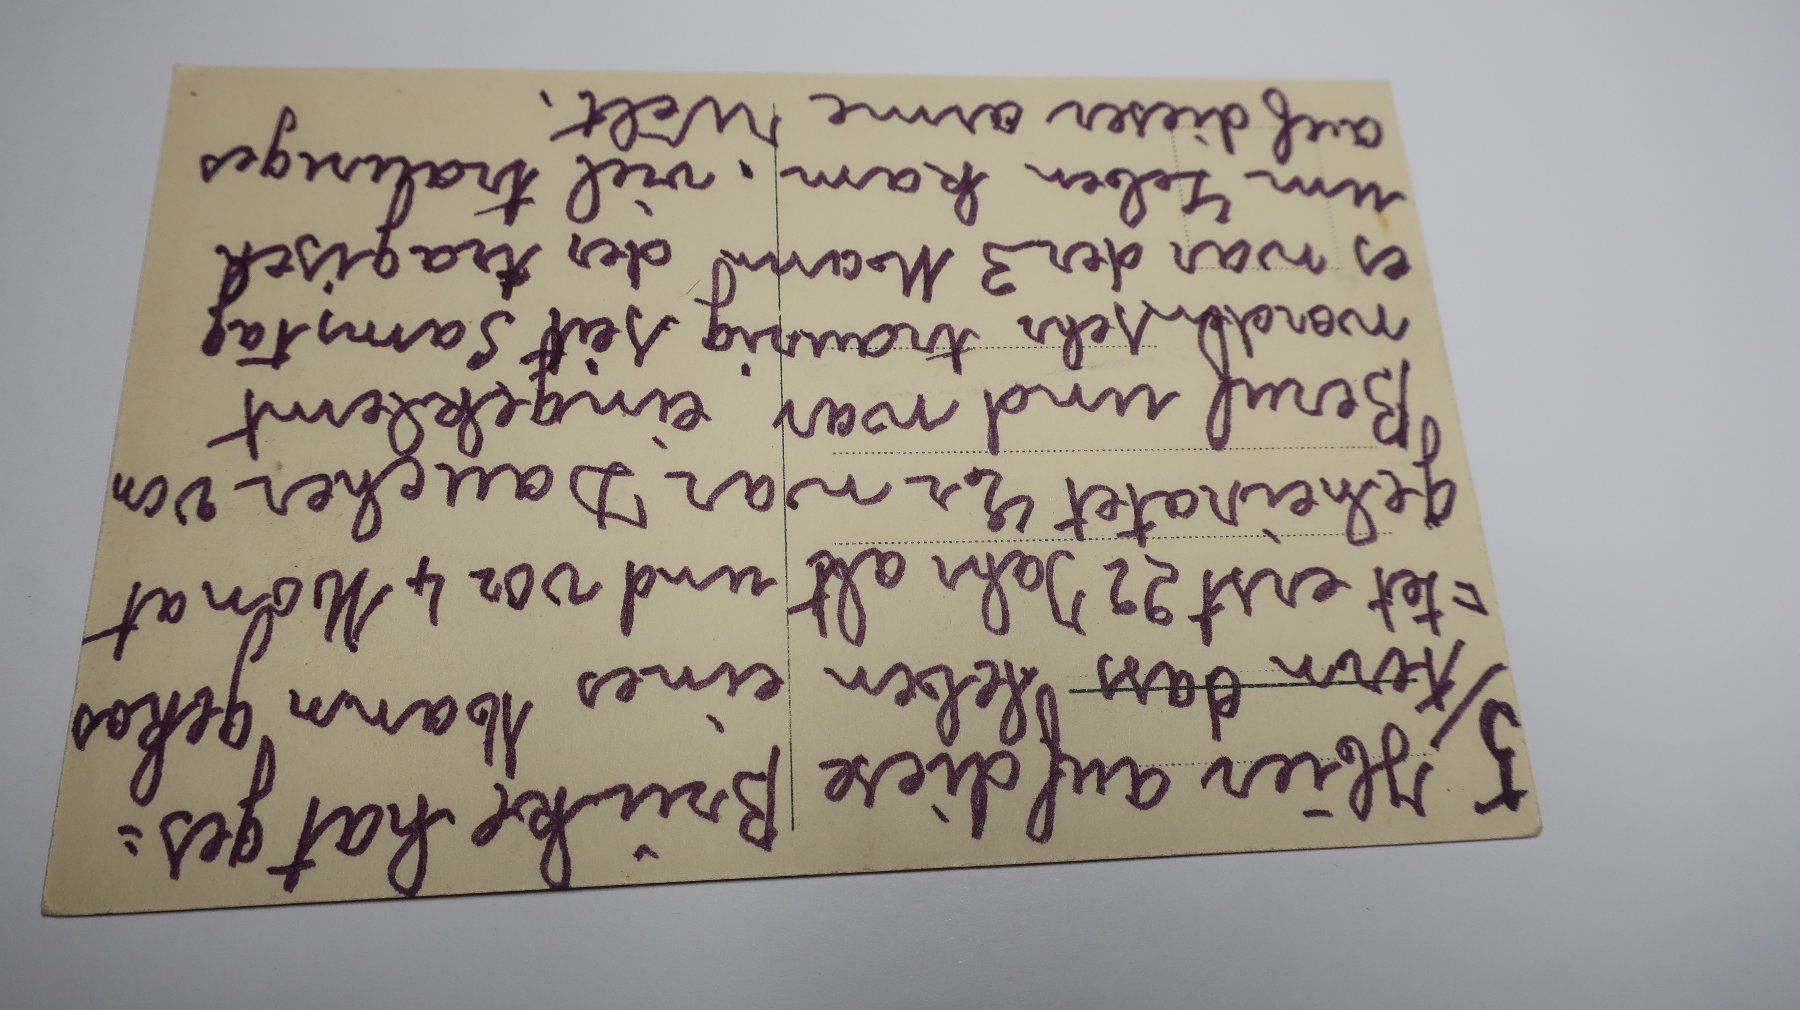 5/ Hier auf diese Brüke hat ges=
tern dass Leben eines Mann gekos
=tet erst 22 Jahr alt und vor 4 Monat
geheiratet Er war Taucher von
Beruf und war eingeklemt
worden, sehr traurig seit Samstag
es war der 3 Mann der tragisch
um Leben kam. viel trauriges
auf dieser arme Welt.